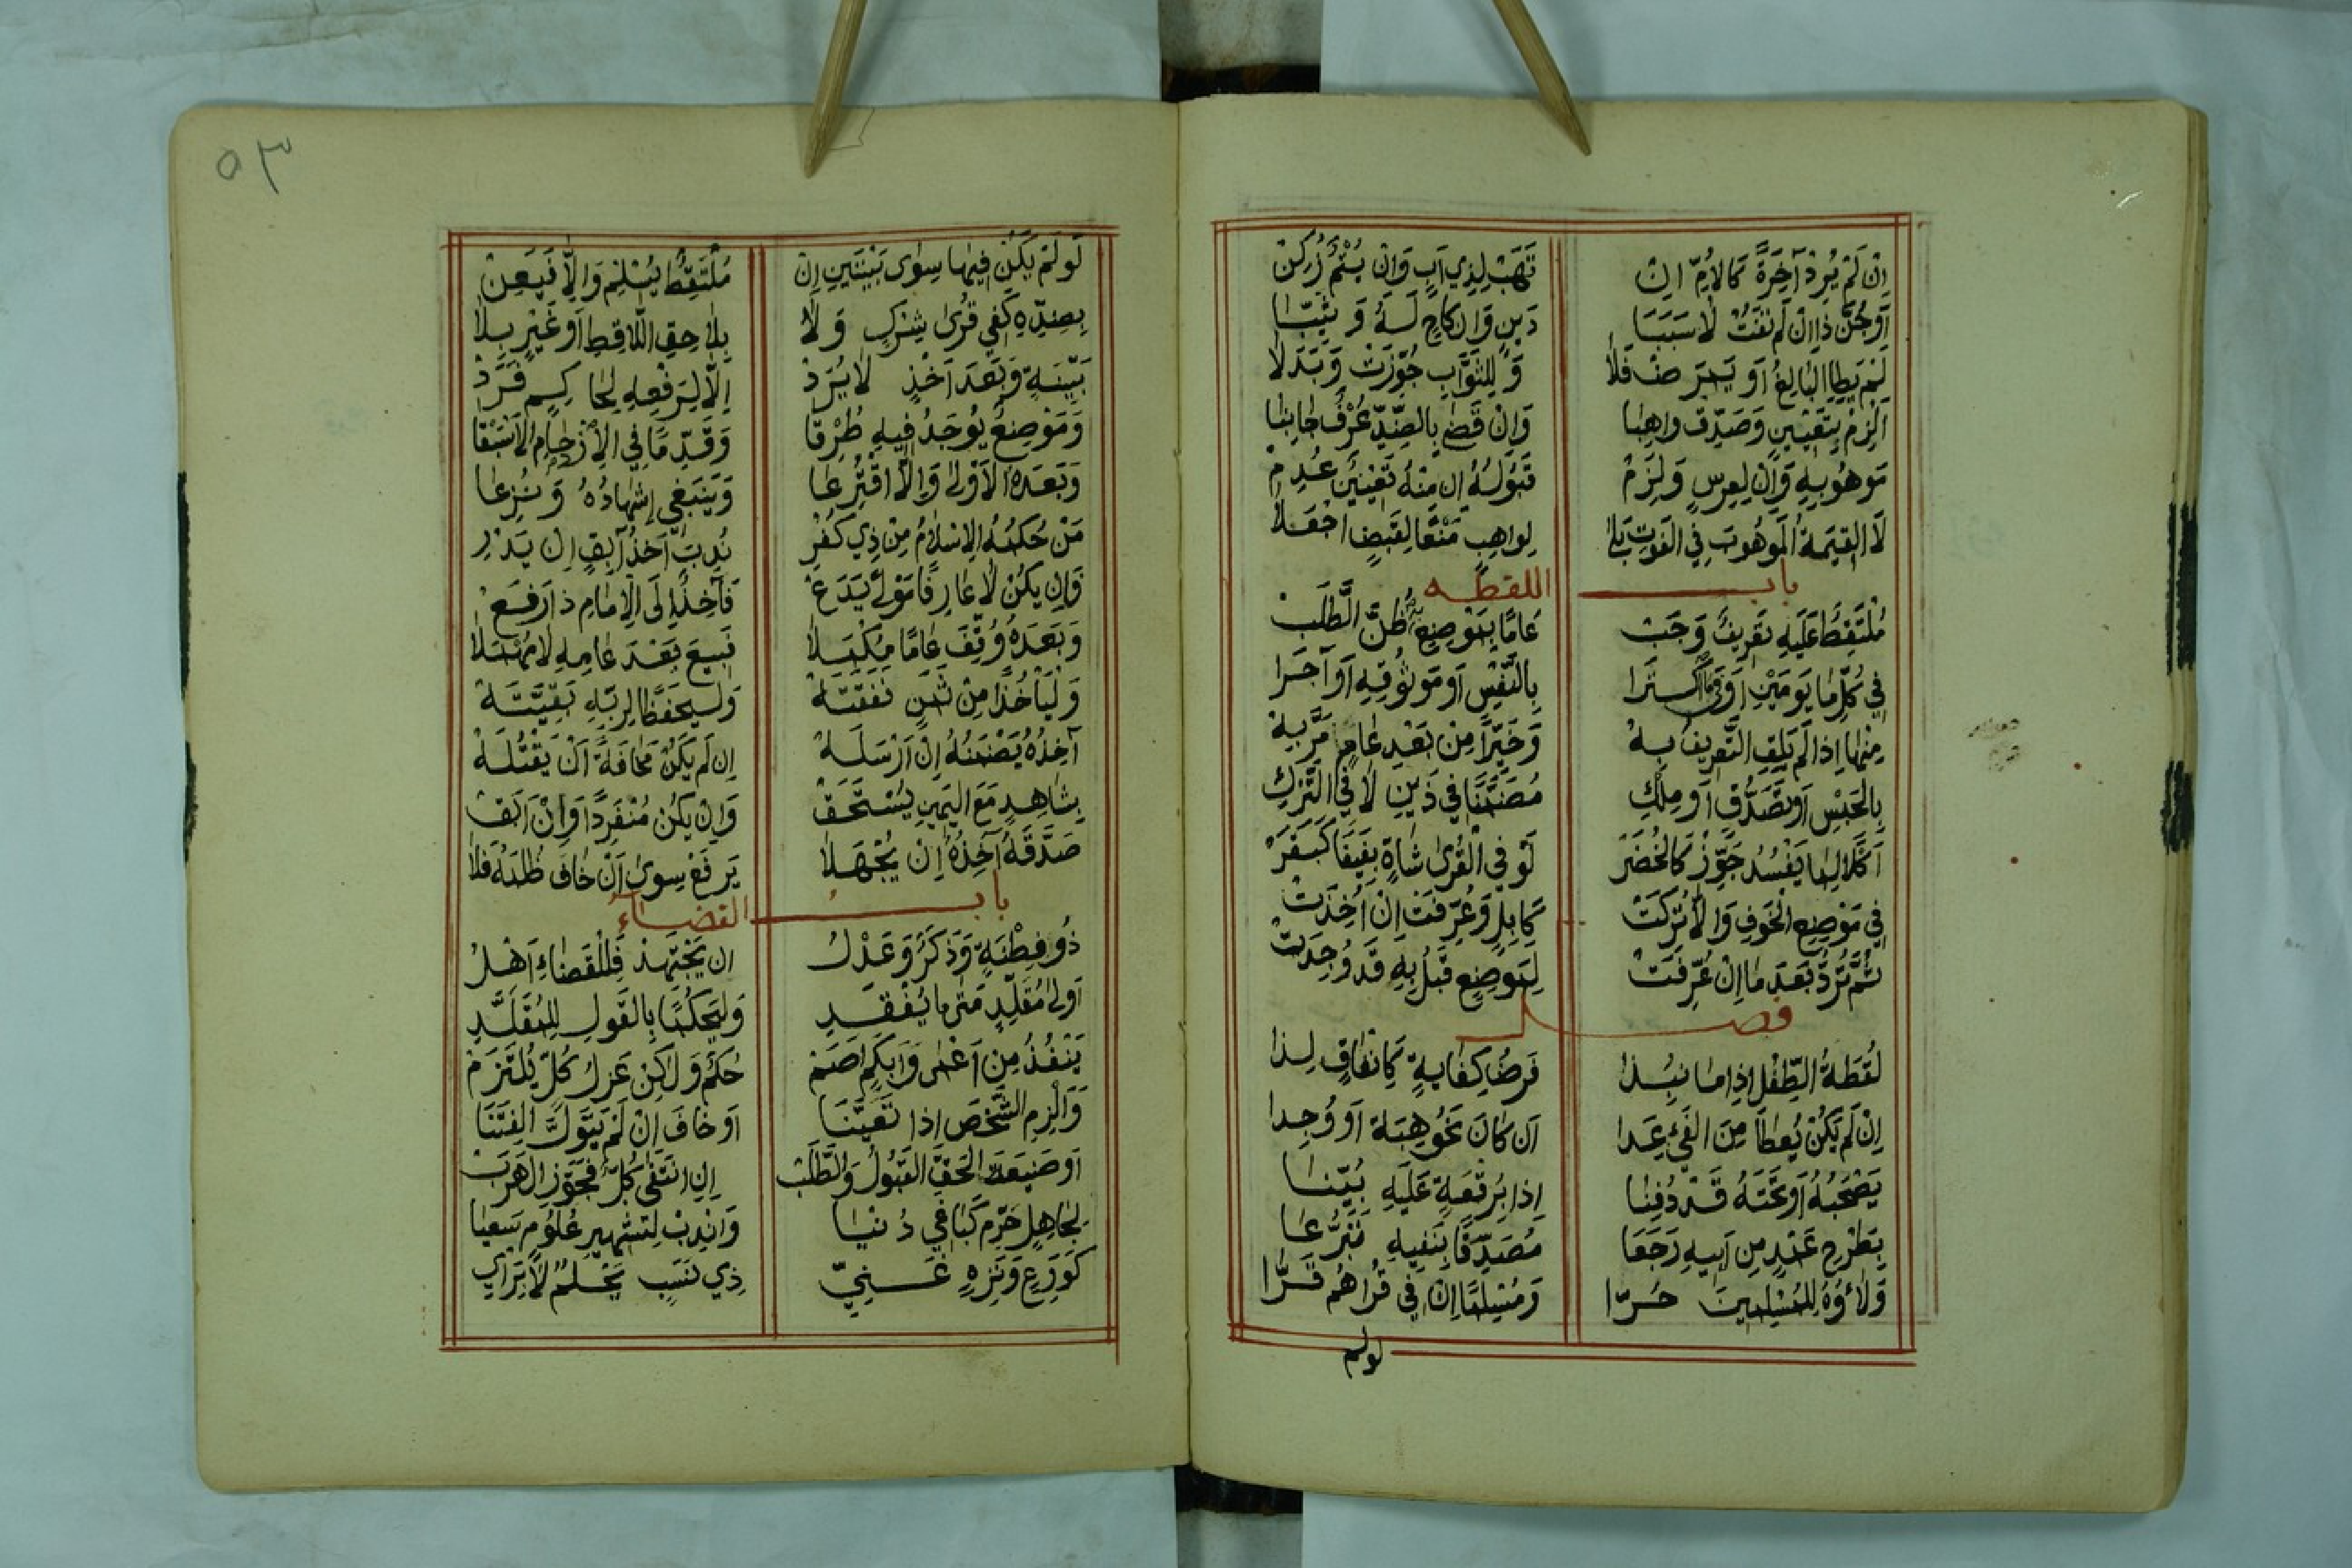 اِنْ لَمْ يُرِدْ آخِرَةً كَالاُمِّ اِنْ تَهَبْ لِذِي اَبٍ وَاِنْ يُتْمٌ زُكِنْ
اَوْ جُنَّ ذَا اِنْ لَمْ تَفُتْ لَا سَبَبَا دَيْنٍ وَاِنكَاحٍ لَهُ وَثَيِّبَا
لَمْ يَطَا البَالِغُ اَوْ بَحَرَ صْفَ فَلَا وَلِلثَّوَابِ جُوِّزَتْ وَبَدَلَا
اَلْزِمْ بِتَعْيِينٍ وَصَدِّقْ وَاهِبَا وَاِنْ قَضٰى بِالضِّدِّ عُرْفٌ جَانِبَا
مَوْهُوبِهِ وَاِنْ لِعِرْسٍ وَلَزِمْ قَبُولُهُ اِنْ مِنْهُ تَعْيِينٌ عُدِمْ
لَا القِيمَةُ المَوْهُوبَ فِي الفَوتِ بَلَا لِوَاهِبٍ مَنْعًا لِقَبْضٍ اجْعَلَا
بـاب اللقطه
مُلْتَقِطٌ عَلَيهِ تَعْرِيفٌ وَجَبْ عَامًا بِمَوْضِعٍ بِهِ ظُنَّ الطَّلَبْ
فِي كُلِّ مَا يَومَيْنِ اَوْ مَا اَكْثَرَا بِالنَّفْسِ اَوْ مَوثُوقِهِ اَوْ آجَرَا
مِنْهَا اِذَا لَمْ يَلِقِ التَّعْرِيفُ بِهْ وَخَيِّرًا مِنْ بَعْدِ عَامٍ مَرَّ بِهْ
بِالحَبْسِ اَوْ تَصَدُّقٍ اَوْ مِلْكِ مُضَمَّنًا فِي ذَيْنِ لَا فِي التَّرْكِ
اَكْلًا لِمَا يَفْسُدُ جَوِّزْ كَالخُضَرْ لَوْ فِي القُرٰى شَاةٍ بِفَيْفَا كَبَقَرْ
فِي مَوْضِعِ الخَوفِ وَاِلَّا تُرِكَتْ كَاِبِلٍ وَعُرِّفَتْ اِنْ اُخِذَتْ
ثُمَّ تُرَدُّ بَعْدَ مَا اِنْ عُرِّفَتْ لِمَوضِعٍ قَبْلُ بِهِ قَدْ وُجِدَتْ
فصــل
لُقَطَةُ الطِّفْلِ اِذَا مَا نُبِذَا فَرْضُ كِفَايَةٍ كَاِنفَاقٍ لِذَا
اِنْ لَمْ يَكُنْ يُعطَا مِنَ الفَيْءِ عَدَا اَنْ كَانَ نَحْوُ هِبَةٍ اَوْ وُجِدَا
يَصْحَبُهُ اَوْ تَحْتَهُ قَدْ دُفِنَا اِذَا بِرُقْعَةٍ عَلَيهِ بُيِّنَا
بِطَرْحِ عَمْدٍ مِنْ اَبِيهِ رَجَعَا مُصَدَّقًا بِنَفْيِهِ تَبَرُّعَا
وَلَاؤُهُ لِلمُسْلِمِينَ حُرَّا وَمُسْلِمًا اِنْ فِي قُرَاهُم قَرَّا
لولم
٥٣
لَوْ لَمْ يَكُنْ فِيهَا سِوٰى بَيْتَيْنِ اِنْ مُلْتَقِطٌ يُسْلِمْ وَاِلَّا فَيَعِنْ
بِضِدِّهِ كَفِي قُرٰى شِرْكٍ وَلَا بِلَاحِقِ اللَّاقِطِ اَوْ غَيْرٍ بِلَا
بَيِّنَةٍ وَبَعْدَ اَخْذٍ لَا يُرَدْ اِلَّا لِيَرفَعِهِ لِحَاكِمٍ فَرَدْ
وَمَوْضِعٌ يُوجَدُ فِيهِ طُرِقَا وَقَدِّمًا فِي الاِزْدِحَامِ الاَسْبَقَا
وَبَعْدَهُ الاَوْلٰى وَاِلَّا اقْتُرِعَا وَيَنْبَغِي اِشْهَادُهُ وَنُزِعَا
مَنْ حُكْمُهُ الاِسْلَامُ مِنْ ذِي كُفْرِ نُدِبَ اَخْذُ آبِقٍ اِنْ يَدْرِ
وَاِنْ يَكُنْ لَا عَارِفًا مَوْلًى يَدَعْ فَآخِذٌ اِلَى الاِمَامِ ذَا رَفَعْ
وَبَعْدَهُ وُقِّفَ عَامًا مُكْمَلَا فَبِيعَ بَعْدَ عَامِهِ لَا مُهْمَلَا
وَلْيَأْخُذًا مِنْ ثَمَنٍ نَفَقَتَهْ وَلْيَحْفَظًا لِرَبِّهِ بَقِيَّتَهْ
آخِذُهُ يَضْمَنُهُ اِنْ اَرْسَلَهْ اِنْ لَمْ يَكُنْ مَخَافَةً اَنْ يَقْتُلَهْ
بِشَاهِدٍ مَعَ اليَمِينِ يُسْتَحَقْ وَاِنْ يَكُنْ مُنْفَرِدًا وَاِنْ اَبَقْ
صَدَّقَهُ آخِذُهُ اِنْ يُجْهَلَا يَرفَعْ سِوٰى اَنْ خَافَ ظُلمَهُ فَلَا
بـاب القضـاء
ذُو فِطْنَةٍ وَذَكَرٌ وَعَدْلُ اِنْ يَجْتَهِدْ فَلِلْقَضَاءِ اَهْلُ
اَوْلٰى مُقَلِّدٍ مَتٰى مَا يُفْقَدِ وَلْيَحْكُمًا بِالقَولِ لِلمُقَلَّدِ
يَنْفُذُ مِنْ اَعْمٰى وَابكَمٍ اَصَمْ حُكْمٌ وَلٰكِنْ عَزْلُ كُلٍّ يُلْتَزَمْ
وَاَلْزِمِ الشَّخْصَ اِذَا تَعَيَّنَا اَوْ خَافَ اِنْ لَمْ يَتَوَلَّ الفِتَنَا
اَوْ ضَيْعَةَ الحَقِّ القَبُولُ وَالطَّلَبْ اِنِ انْتَفٰى كُلٌّ فَجَوِّزِ الهَرَبْ
لِجَاهِلٍ حَرِّمْ كَبَاغِي دُنْيَا وَانْدِبْ لِتَشْهِيرِ عُلُومٍ سَعْيَا
كَوَرِعٍ وَنَزِهٍ غَنِيِّ ذِي نَسَبٍ بِحِلْمٍ لَا بَرَاي